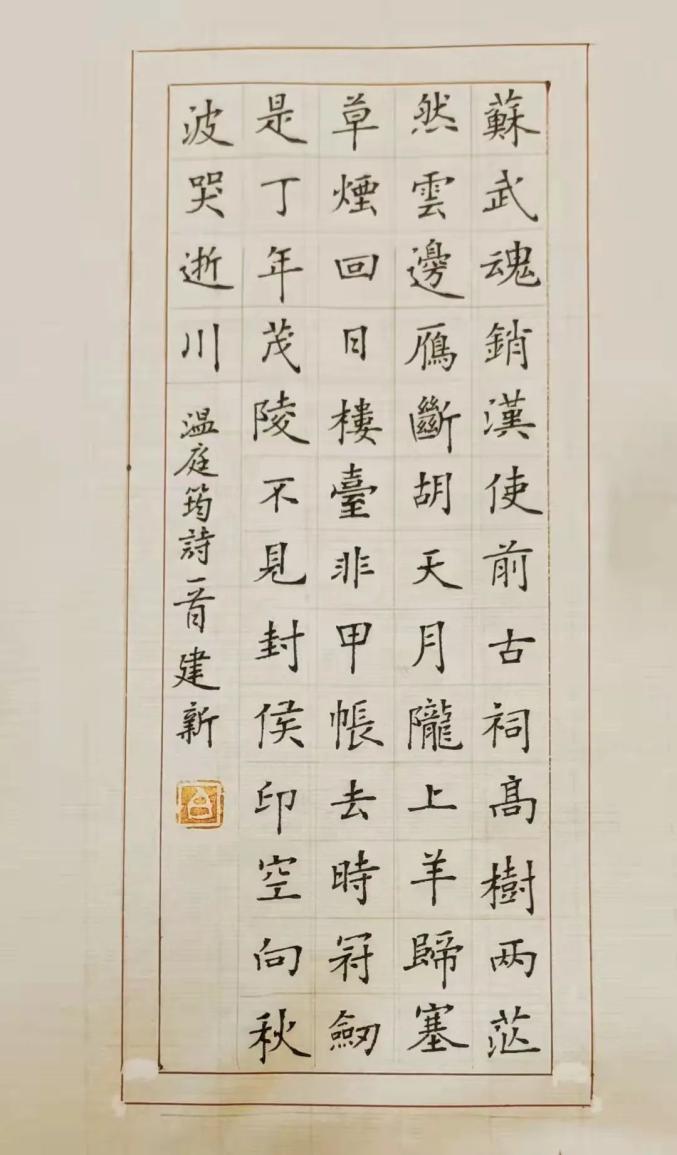 蘇武魂銷漢使前古祠高樹兩茫
然雲邊鴈斷胡天月隴上羊歸塞
草煙回日樓臺非甲帳去時冠劒
是丁年茂陵不見封侯印空向秋
波哭逝川
温庭筠詩一首建新